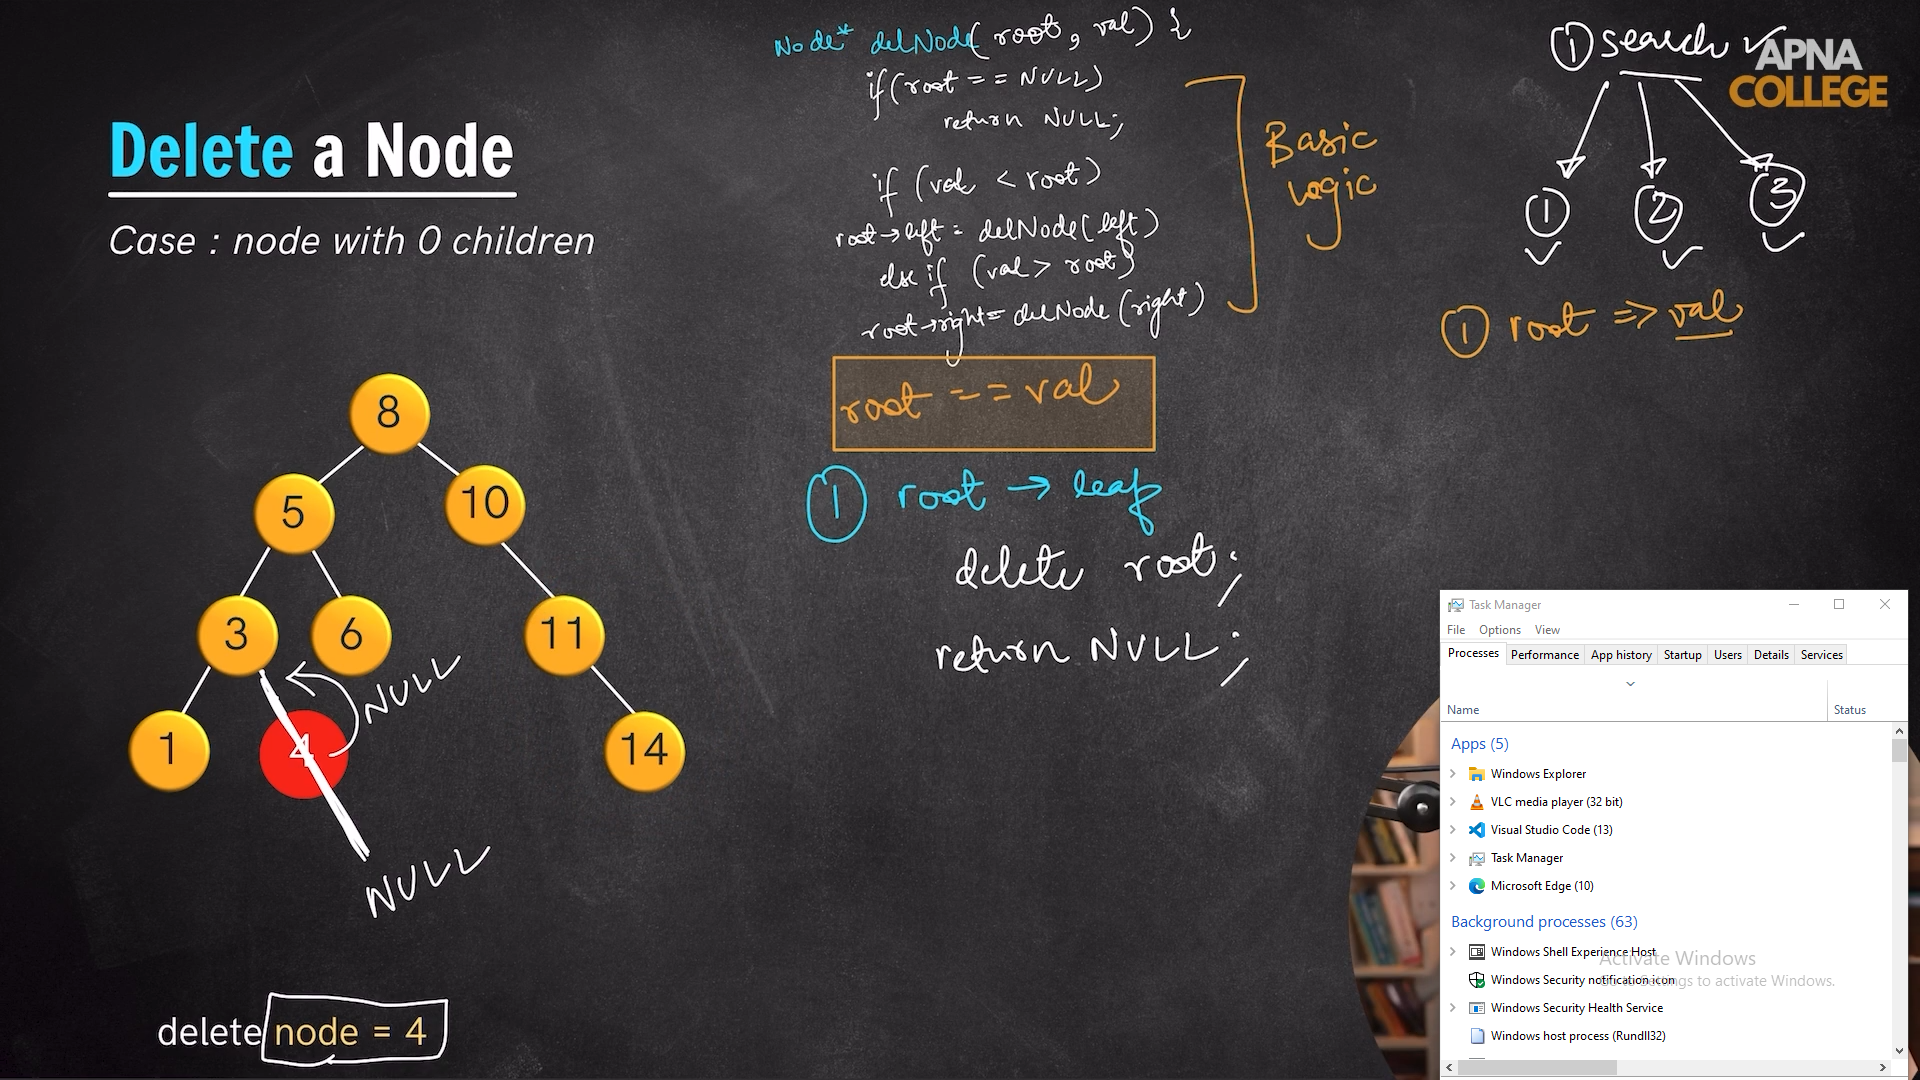 Delete a Node
Case : node with 0 children
8
5
10
3
6
11
1
4
14
NULL
NULL
delete node = 4
Node* delNode(root, val) {
if(root == NULL)
return NULL;
if (val < root)
root→left = delNode(left)
else if (val > root)
root→right = delNode(right)
Basic
Logic
root == val
① root → leaf
delete root;
return NULL;
① search ✓
APNA
COLLEGE
① ② ③
① root => val
Task Manager
File Options View
Processes Performance App history Startup Users Details Services
Name Status
Apps (5)
Windows Explorer
VLC media player (32 bit)
Visual Studio Code (13)
Task Manager
Microsoft Edge (10)
Background processes (63)
Windows Shell Experience Host
Windows Security notification icon
Windows Security Health Service
Windows host process (Rundll32)
Activate Windows
Go to Settings to activate Windows.